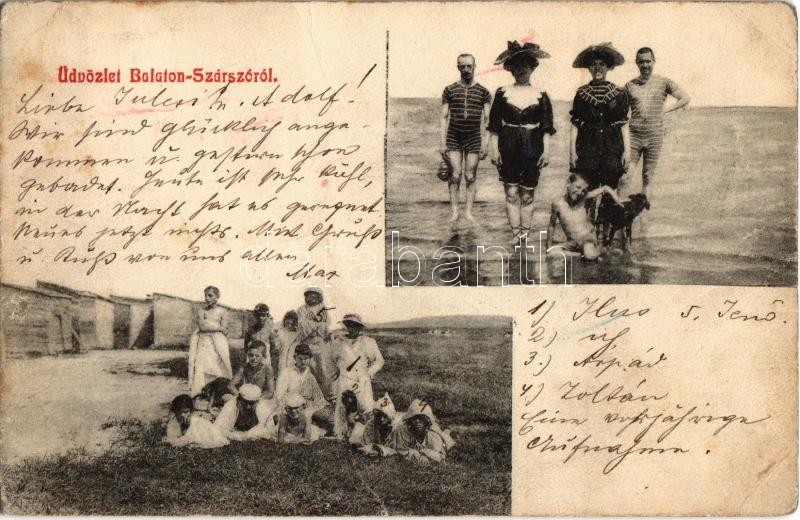 Üdvözlet Balaton-Szárszóról.
Liebe Julcsi u. Adolf!
Wir sind glücklich ange-
kommen u. gestern schon
gebadet. Heute ist sehr kühl,
in der Nacht hat es geregnet
Neues jetzt nichts. Mit Gruß
u. Kuß von uns allen
Max
darabanth
5
1
2
3
4
1) Ilus 5. Jenő.
2.) ich
3.) Árpád
4) Zoltán
Eine vorjährige
Aufnahme.